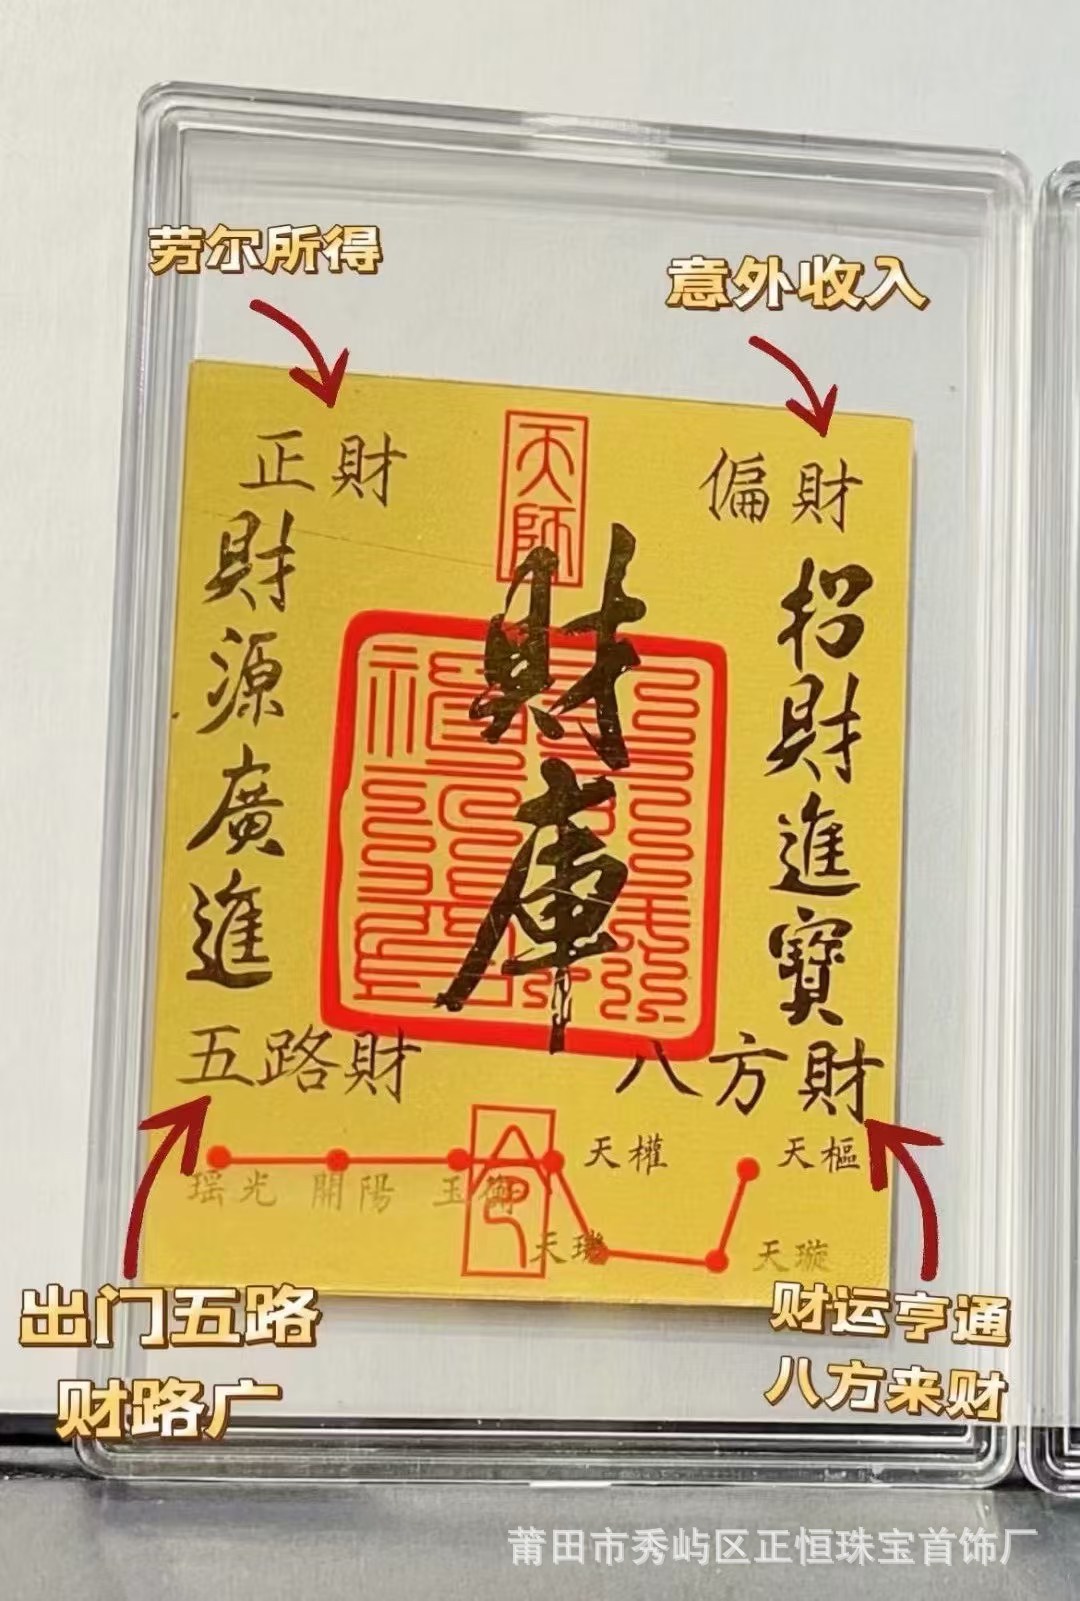 劳尔所得
意外收入
正財
偏財
天師
財源廣進
財庫
招財進寶
五路財
八方財
天權
天樞
瑶光
開陽
玉衡
天璣
天璇
出门五路
财路广
财运亨通
八方来财
莆田市秀屿区正恒珠宝首饰厂